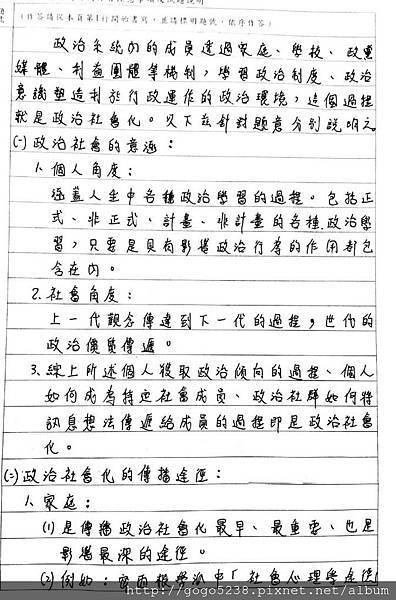 (作答請從本頁第1行開始書寫，並請標明題號，依序作答)
政治系統內的成員透過家庭、學校、政黨
媒體、利益團體等機制，學習政治制度、政治
意識塑造利於行政運作的政治環境，這個過程
就是政治社會化。以下茲針對題意分別說明之。
(一)政治社會的意涵：
1. 個人角度：
涵蓋人生中各種政治學習的過程。包括正
式、非正式、計畫、非計畫的各種政治學
習，只要是具有影響政治行為的作用都包
含在內。
2. 社會角度：
上一代觀念傳達到下一代的過程，世代的
政治價值傳遞。
3. 綜上所述個人獲取政治傾向的過程、個人
如何成為特定社會成員、政治社群如何將
訊息想法傳遞給成員的過程即是政治社會
化。
(二)政治社會化的傳播途徑：
1. 家庭：
(1) 是傳播政治社會化最早、最重要、也是
影響最深的途徑。
(2) 例如：密西根學派中「社會心理學途徑
http://gogo5238.pixnet.net/album